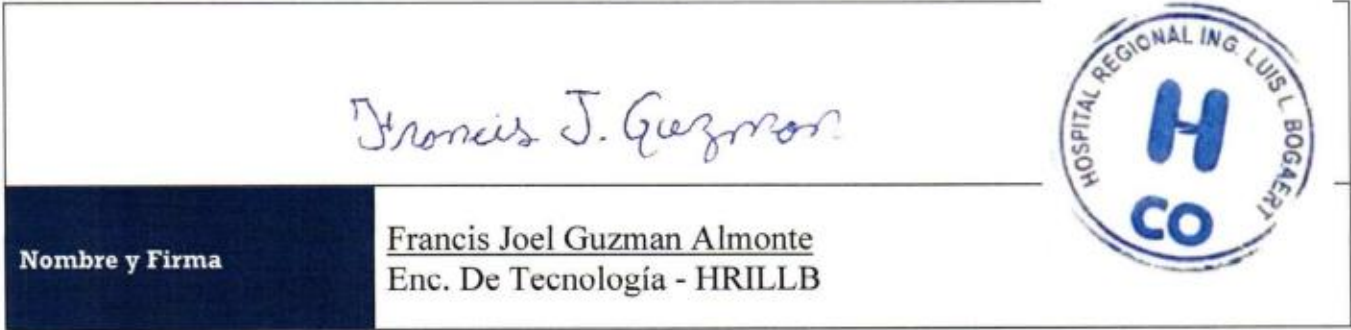 Francis J. Guzman
HOSPITAL REGIONAL ING. LUIS L. BOGAERT
H
CO
Nombre y Firma
Francis Joel Guzman Almonte
Enc. De Tecnología - HRILLB